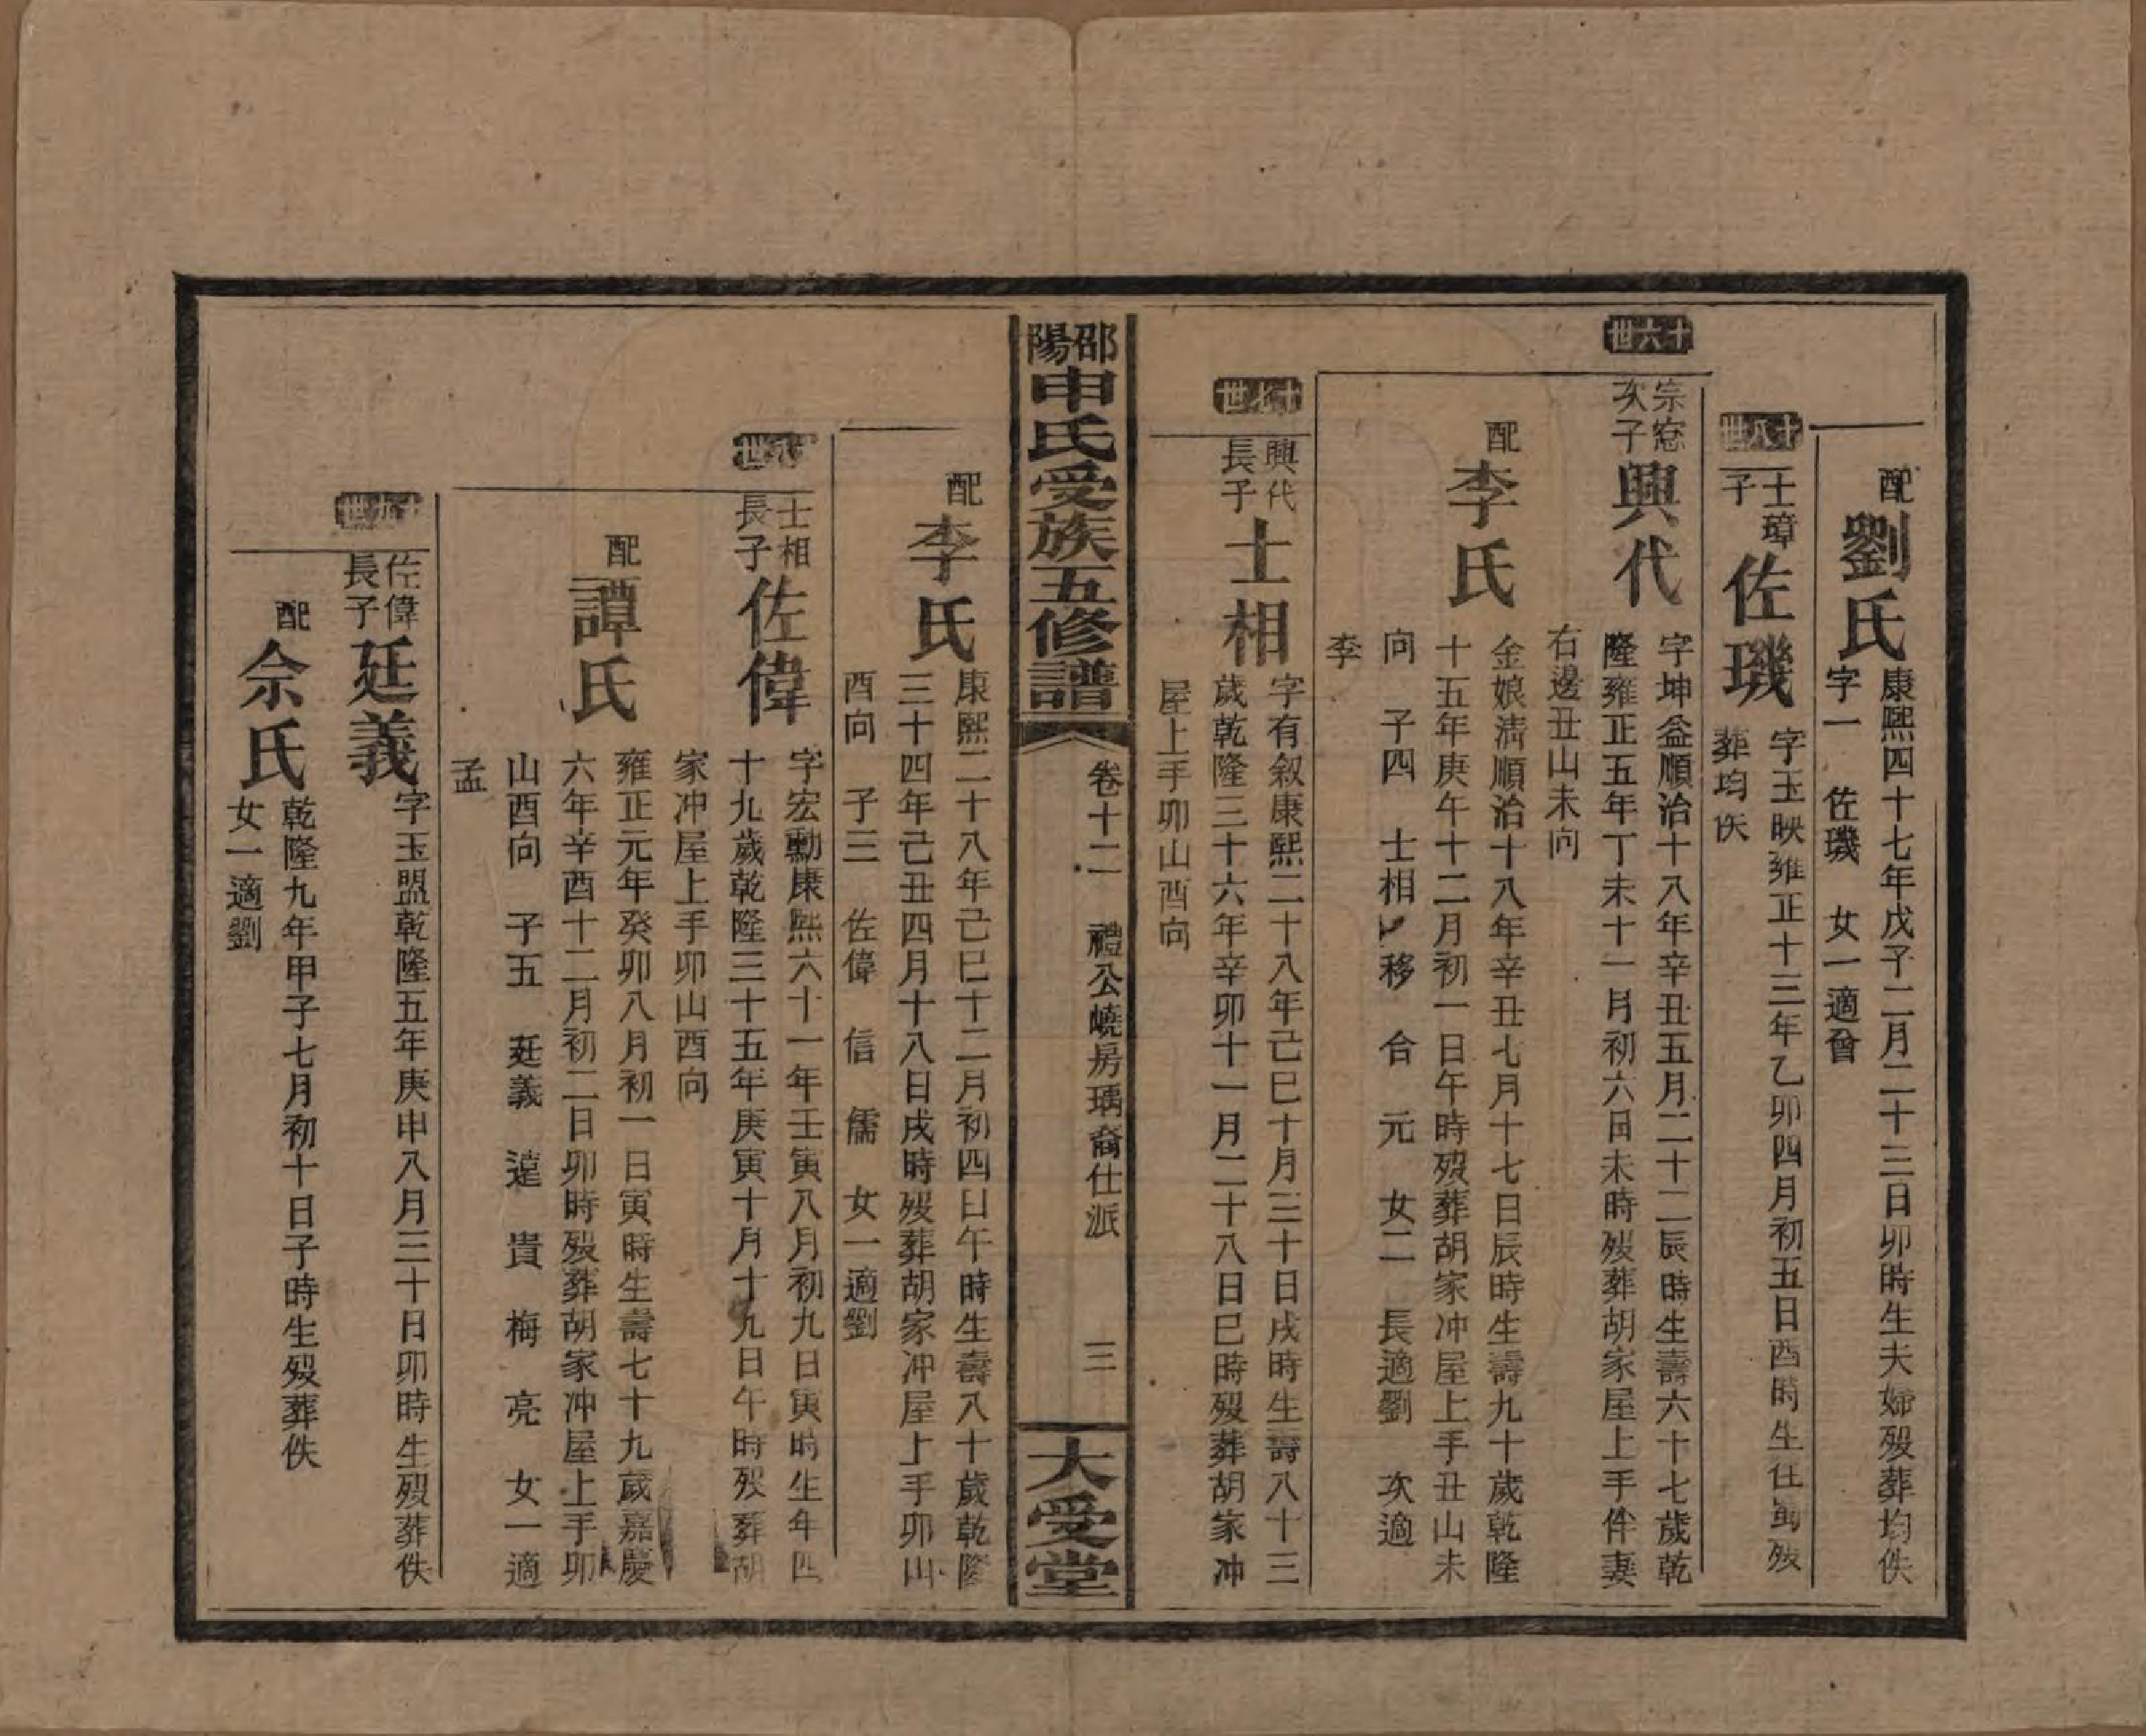 配
劉氏
康熙四十七年戊子二月二十三日卯時生夫婦歿葬均佚
字一　佐璣　女一適曾
十八世
士璋
子
佐璣
字玉映雍正十三年乙卯四月初五日酉時生往蜀歿
葬均佚
十六世
宗窓
次子
興代
字坤益順治十八年辛丑五月二十二辰時生壽六十七歲乾
隆雍正五年丁未十一月初六日未時歿葬胡家屋上手伴妻
右邊丑山未向
配
李氏
金娘清順治十八年辛丑七月十七日辰時生壽九十歲乾隆
十五年庚午十二月初一日午時歿葬胡家冲屋上手丑山未
向　子四　士相　移　合　元　女二　長適劉　次適
李
十七世
興代
長子
士相
字有敘康熙二十八年己巳十月三十日戌時生壽八十三
歲乾隆三十六年辛卯十一月二十八日巳時歿葬胡家冲
屋上手卯山酉向
邵陽申氏受族五修譜
卷十二　禮公嶢房瑀裔仕派
三
大受堂
配
李氏
康熙二十八年己巳十二月初四日午時生壽八十歲乾隆
三十四年己丑四月十八日戌時歿葬胡家冲屋上手卯山
酉向　子三　佐偉　信　儒　女一適劉
十八世
士相
長子
佐偉
字宏勳康熙六十一年壬寅八月初九日寅時生年四
十九歲乾隆三十五年庚寅十月十九日午時歿葬胡
家冲屋上手卯山酉向
配
譚氏
雍正元年癸卯八月初一日寅時生壽七十九歲嘉慶
六年辛酉十二月初二日卯時歿葬胡家冲屋上手卯
山酉向　子五　廷義　達　貴　梅　亮　女一適
孟
十九世
佐偉
長子
廷義
字玉盟乾隆五年庚申八月三十日卯時生歿葬佚
配
佘氏
乾隆九年甲子七月初十日子時生歿葬佚
女一適劉